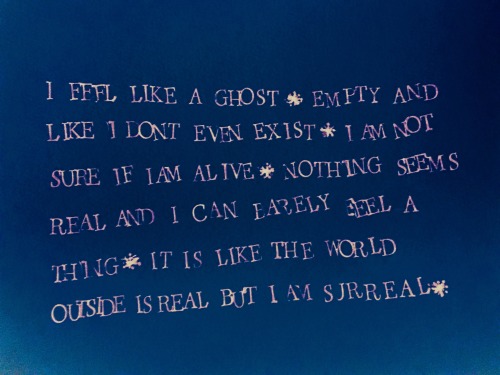 I FEEL LIKE A GHOST * EMPTY AND
LIKE I DONT EVEN EXIST * I AM NOT
SURE IF I AM ALIVE * NOTHING SEEMS
REAL AND I CAN BARELY FEEL A
THING * IT IS LIKE THE WORLD
OUTSIDE IS REAL BUT I AM SURREAL *